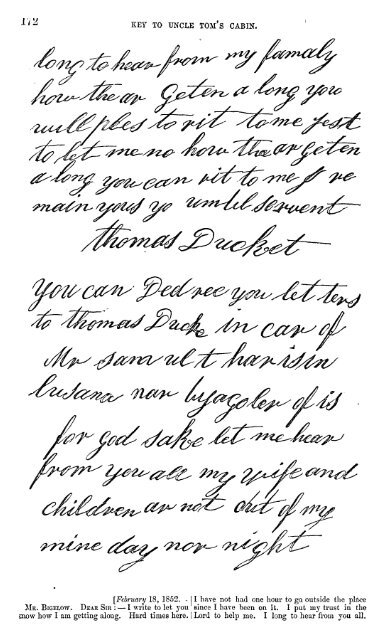 172
KEY TO UNCLE TOM'S CABIN.
long to hear from my famaly
how the ar Geten a long you
will ples to rit to me Jest
to let me no how the ar geten
a long you can rit to me I re
main yous yo umbil Servent
Thomas Ducket
You can Ded rec you let ters
to thomas Ducke in car of
Mr samuel t harisin
lusana nar byagoler of is
for god sake let me hear
from you all my wife and
children ar not out of my
mine day nor night
[February 18, 1852.
MR. BIGELOW. DEAR SIR:—I write to let you
know how I am getting along. Hard times here.
I have not had one hour to go outside the place
since I have been on it. I put my trust in the
Lord to help me. I long to hear from you all.